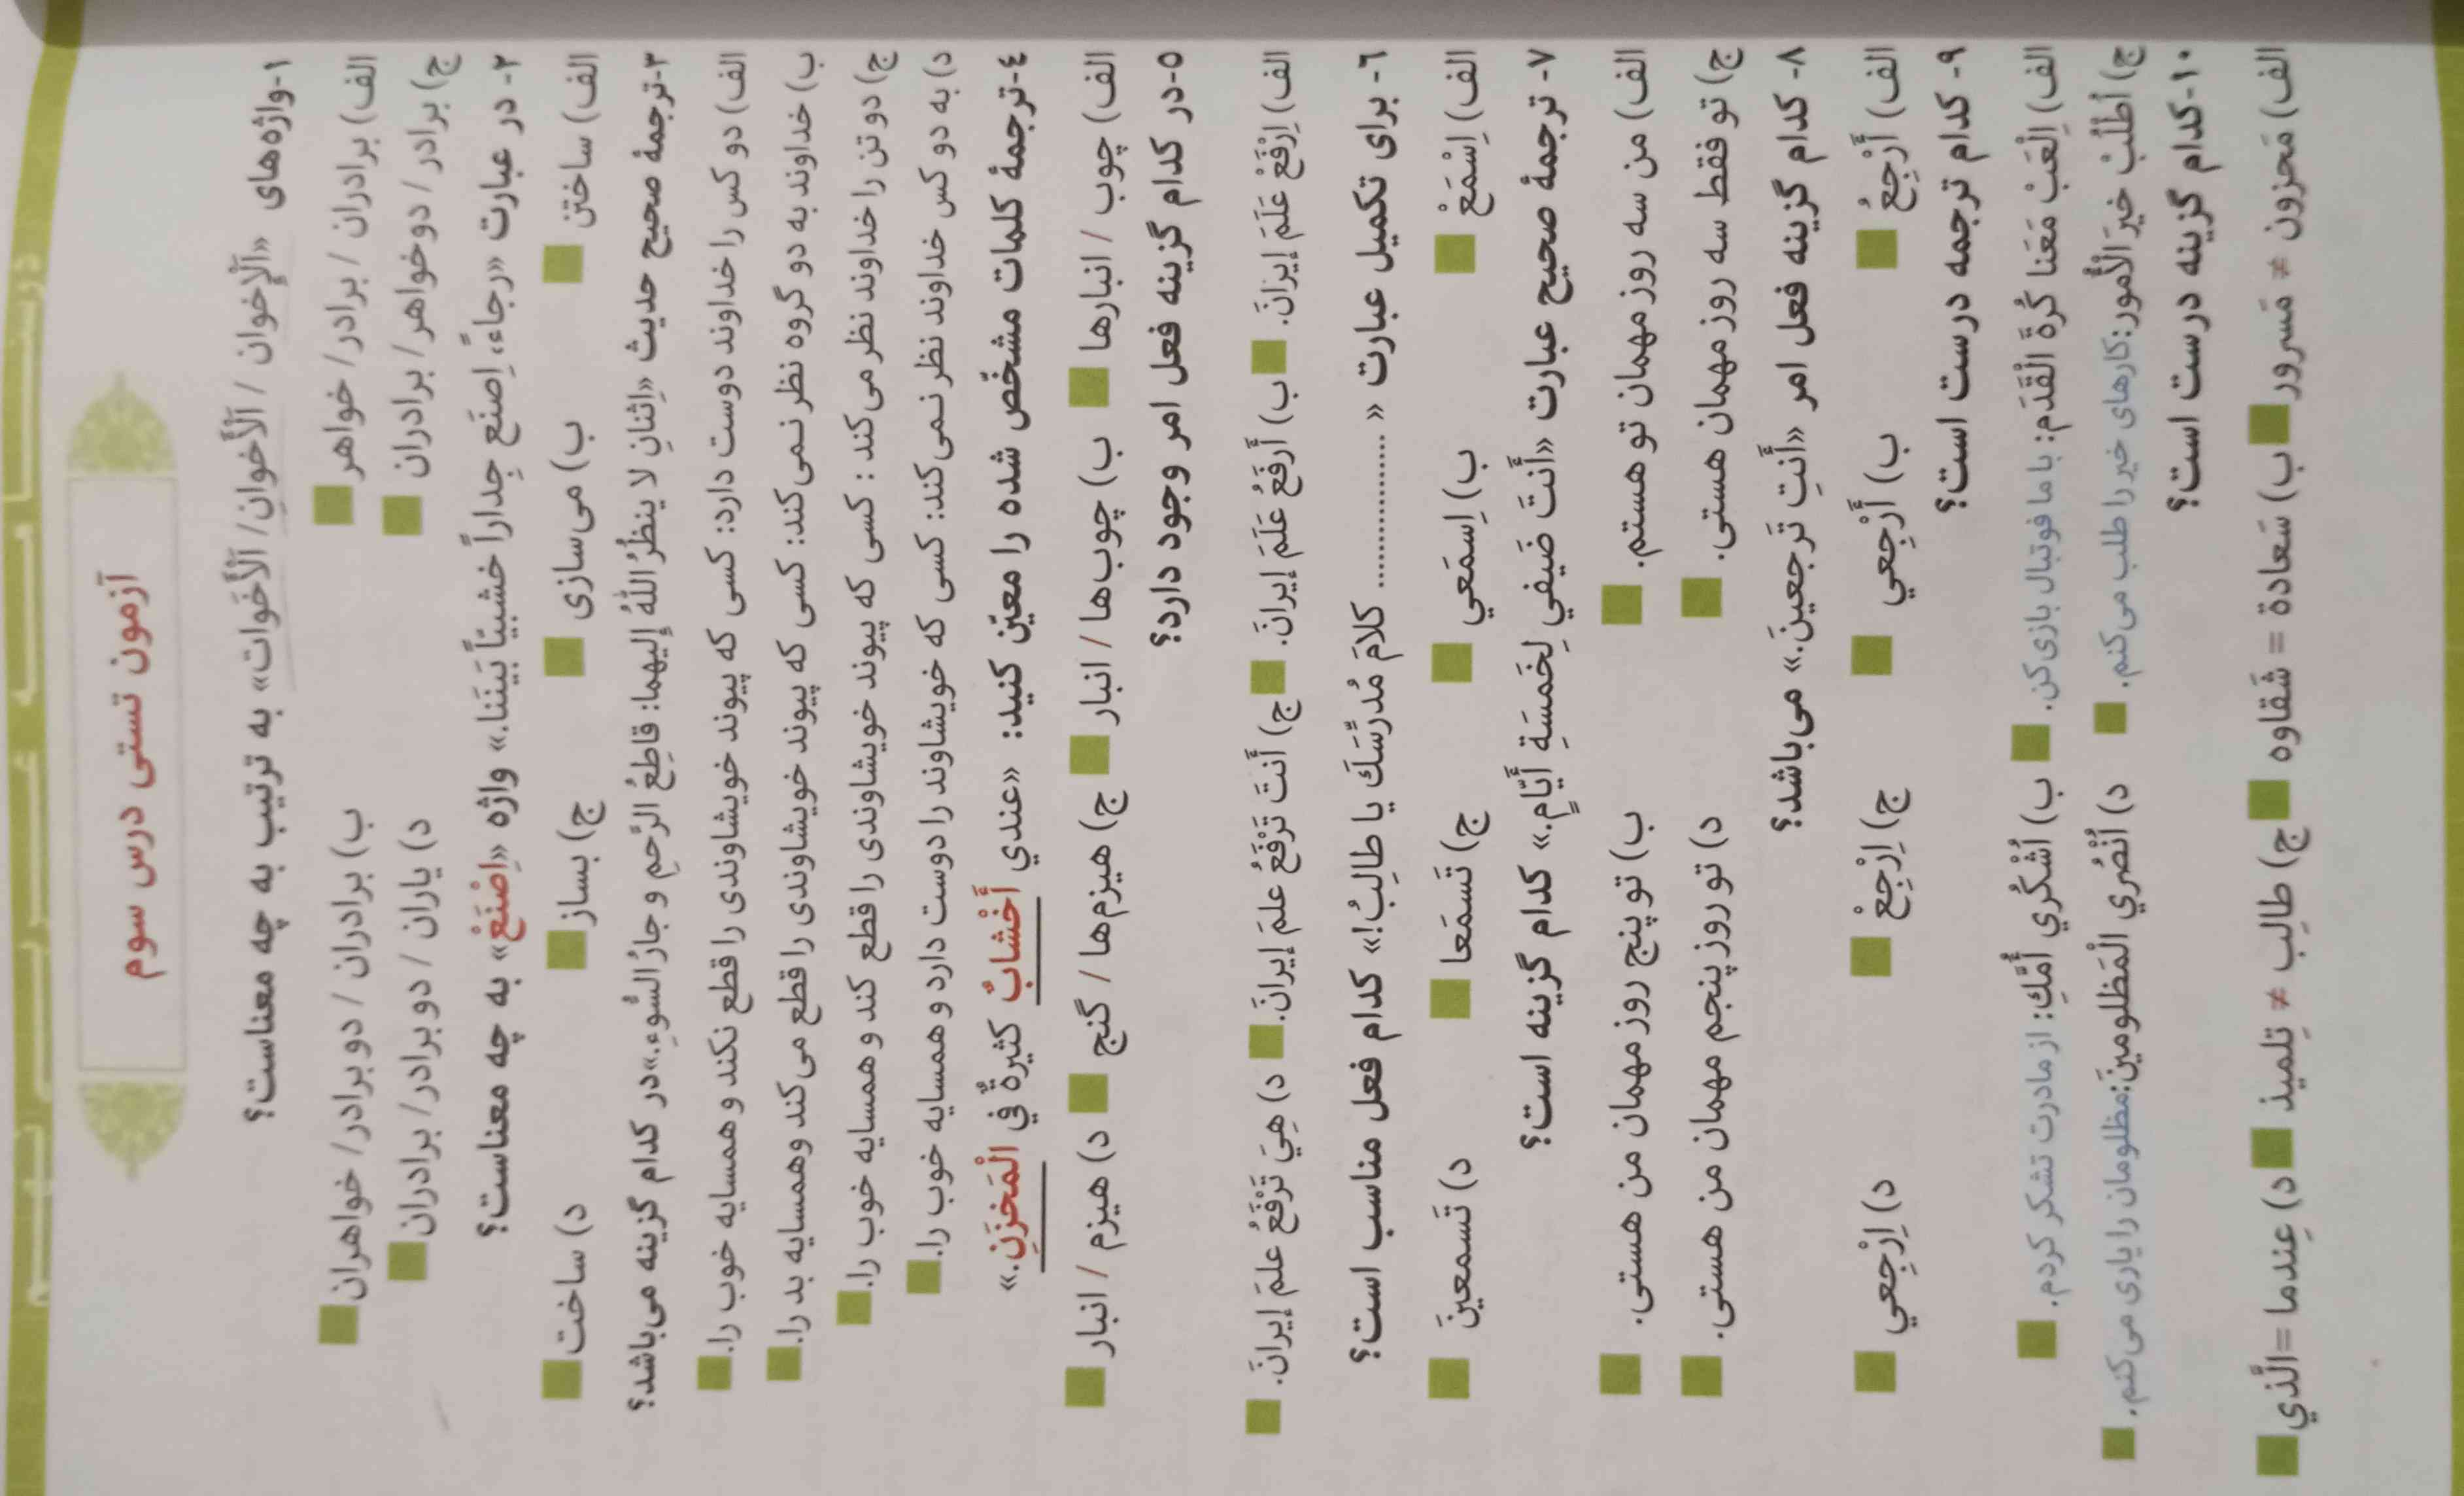 آزمون تستی درس سوم
۱-واژه‌های «اَلْإخوان / اَلْأَخوانِ/ اَلْأَخَوات» به ترتیب به چه معناست؟
الف) برادران / برادر/ خواهر ب) برادران / دو برادر/ خواهران
ج) برادر/ دوخواهر/ برادران د) یاران / دو برادر/ برادران
۲- در عبارت «رجاءً، اِصنَع جِداراً خشبیّاً بَینَنا.» واژه «اِصْنَعْ» به چه معناست؟
الف) ساختن ب) می‌سازی ج) بساز د) ساخت
۳-ترجمهٔ صحیح حدیث «اِثنانِ لا ینظُرُ اللّٰهُ إلیهما: قاطِعُ الرَّحِمِ و جارُ السُّوءِ.»در کدام گزینه می‌باشد؟
الف) دو کس را خداوند دوست دارد: کسی که پیوند خویشاوندی را قطع نکند و همسایه خوب را.
ب) خداوند به دو گروه نظر نمی‌کند: کسی که پیوند خویشاوندی را قطع می‌کند و همسایه بد را.
ج) دو تن را خداوند نظر می‌کند : کسی که پیوند خویشاوندی را قطع کند و همسایه خوب را.
د) به دو کس خداوند نظر نمی‌کند: کسی که خویشاوند را دوست دارد و همسایه خوب را.
٤-ترجمهٔ کلمات مشخّص شده را معیّن کنید: «عندي أَخْشابٌ کثیرةٌ في الْمَخزَنِ.»
الف) چوب / انبارها ب) چوب‌ها / انبار ج) هیزم‌ها / گنج د) هیزم / انبار
٥-در کدام گزینه فعل امر وجود دارد؟
الف) اِرْفَعْ عَلَمَ إیرانَ. ب) أَرفَعُ عَلَمَ إیرانَ. ج) أنتَ تَرْفَعُ علمَ إیرانَ. د) هِيَ تَرْفَعُ علمَ إیرانَ.
٦- برای تکمیل عبارت « ................ کلامَ مُدرِّسَكَ یا طالِبُ!» کدام فعل مناسب است؟
الف) اِسْمَعْ ب) اِسمَعي ج) تَسْمَعا د) تَسمعینَ
۷- ترجمهٔ صحیح عبارت «أَنتَ ضَیفي لِخَمسَةِ أَیّامٍ.» کدام گزینه است؟
الف) من سه روز مهمان تو هستم. ب) تو پنج روز مهمان من هستی.
ج) تو فقط سه روز مهمان هستی. د) تو روز پنجم مهمان من هستی.
۸- کدام گزینه فعل امر «أَنتِ تَرجعینَ.» می‌باشد؟
الف) أَرْجِعُ ب) أَرْجِعي ج) اِرْجِعْ د) اِرْجِعي
۹- کدام ترجمه درست است؟
الف) اِلْعَبْ مَعَنا کُرةَ الْقَدَم: با ما فوتبال بازی کن. ب) اُشْکُري أُمَّكِ: از مادرت تشکر کردم.
ج) اُطْلُبْ خیرَ الْأُمور:کارهای خیر را طلب می‌کنم. د) اُنْصُري الْمَظلومینَ:مظلومان را یاری می‌کنم.
۱۰-کدام گزینه درست است؟
الف) مَحزون ≠ مَسرور ب) سَعادة = شَقاوه ج) طالِب ≠ تِلمیذ د) عِندما =الَّذي